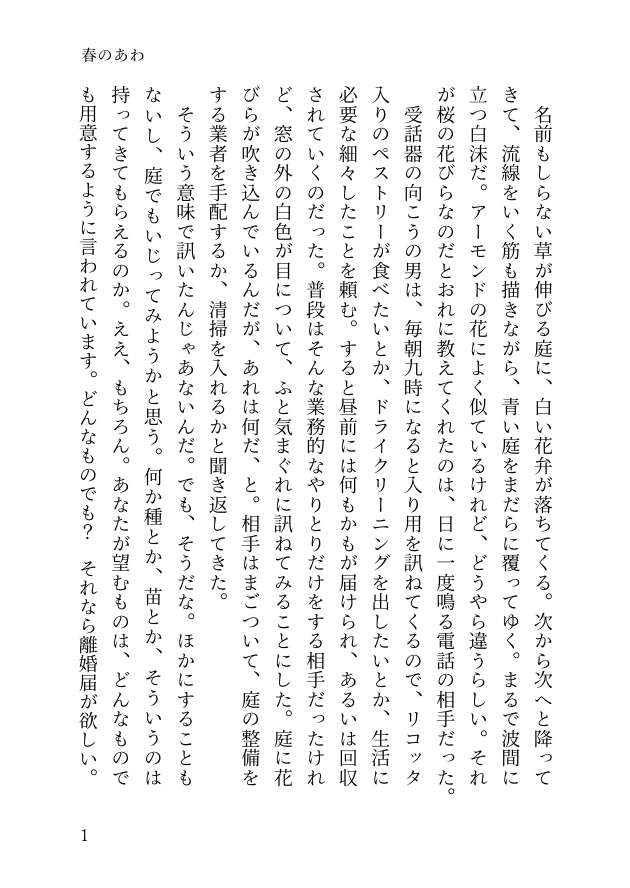 春のあわ
　名前もしらない草が伸びる庭に、白い花弁が落ちてくる。次から次へと降って
きて、流線をいく筋も描きながら、青い庭をまだらに覆ってゆく。まるで波間に
立つ白沫だ。アーモンドの花によく似ているけれど、どうやら違うらしい。それ
が桜の花びらなのだとおれに教えてくれたのは、日に一度鳴る電話の相手だった。
　受話器の向こうの男は、毎朝九時になると入り用を訊ねてくるので、リコッタ
入りのペストリーが食べたいとか、ドライクリーニングを出したいとか、生活に
必要な細々したことを頼む。すると昼前には何もかもが届けられ、あるいは回収
されていくのだった。普段はそんな業務的なやりとりだけをする相手だったけれ
ど、窓の外の白色が目について、ふと気まぐれに訊ねてみることにした。庭に花
びらが吹き込んでいるんだが、あれは何だ、と。相手はまごついて、庭の整備を
する業者を手配するか、清掃を入れるかと聞き返してきた。
　そういう意味で訊いたんじゃあないんだ。でも、そうだな。ほかにすることも
ないし、庭でもいじってみようかと思う。何か種とか、苗とか、そういうのは
持ってきてもらえるのか。ええ、もちろん。あなたが望むものは、どんなもので
も用意するように言われています。どんなものでも？　それなら離婚届が欲しい。
1